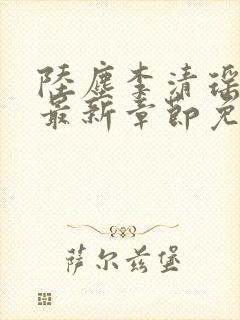 陆尘李清瑶
最新章节免
萨尔兹堡